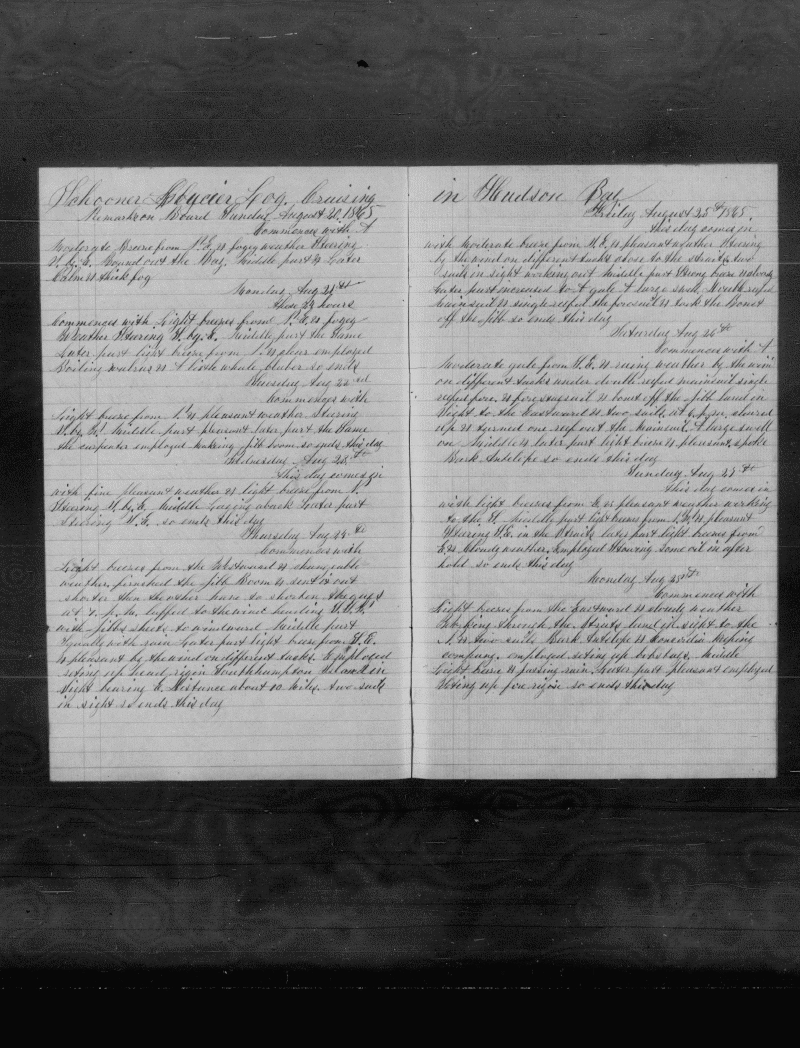 Schooner Glacier Log. Cruising
Remarks on Board Sunday August 20, 1865
Commences with A
Moderate Breeze from N.E. & fogey weather Steering
Bound out the Bay. Middle part & Later
Calm & thick fog
Monday Aug 21st
these 24 hours
Commences with Light breeze from & fogey
Weather Steering Middle part the Same
Later part light breeze from & clear employed
Boiling walrus & A little whale bluber so ends
Tuesday Aug 22nd
Commences with
Light breeze from & pleasant weather Steering
Middle part pleasant later part the Same
the carpenter employed making jib boom so ends this day
Wednesday Aug 23
this day comes in
with fine pleasant weather & light breeze from
Stering Middle laying aback Later part
Steering so ends this day
Thursday Aug 24
Commences with
Light breeze from the Westward & changeable
weather. finished the jib Boom & sent it out
shorter than the other have to shorten the guys
at luffed to the wind heading
with jibbs sheet to windward Middle part
Squally with rain Later part light breeze from
& pleasant by the wind on different tacks. Employed
seting up head rigin Southhampton Island in
Sight bearing Distance about 10 Miles. two sails
in sight so ends this day
in Hudson Bay
Friday August 25th 1865
this day comes in
with Moderate breeze from N.E. & pleasant weather Steering
by the wind on different tacks close to the Straits two
sails in sight working out Middle part Strong breeze
Later part increased to A gale A large swell. Double reefed
mainsail & single reefed the foresail & took the Bonet
off the jibb so ends this day
Saturday Aug 26th
Commences with A
Moderate gale from weather by the wind
on different tacks under double refed mainsail single
refed fore & & bonet off the jibb land in
Sight to the Eastward & two sails. at cleared
up & turned one reef out the Mainsail A large swell
on Middle & later part light breeze & pleasant. spoke
Bark Antelope so ends this day
Sunday Aug 27th
this day comes in
with light breezes from E. & pleasant weather working
to the Middle part light breeze from & pleasant
Steering in the Straits later part light breeze from
E. & cloudy weather. Employed Stowing some oil in after
hold so ends this day
Monday Aug 28th
Commences with
Light breeze from the Eastward & cloudy weather
through the Straits land in sight to the
two sails Bark Antelope & Concordia keeping
company. employed seting up bobstays. Middle
Light breeze & passing rain. Later part pleasant employed
Seting up fore rigin so ends this day